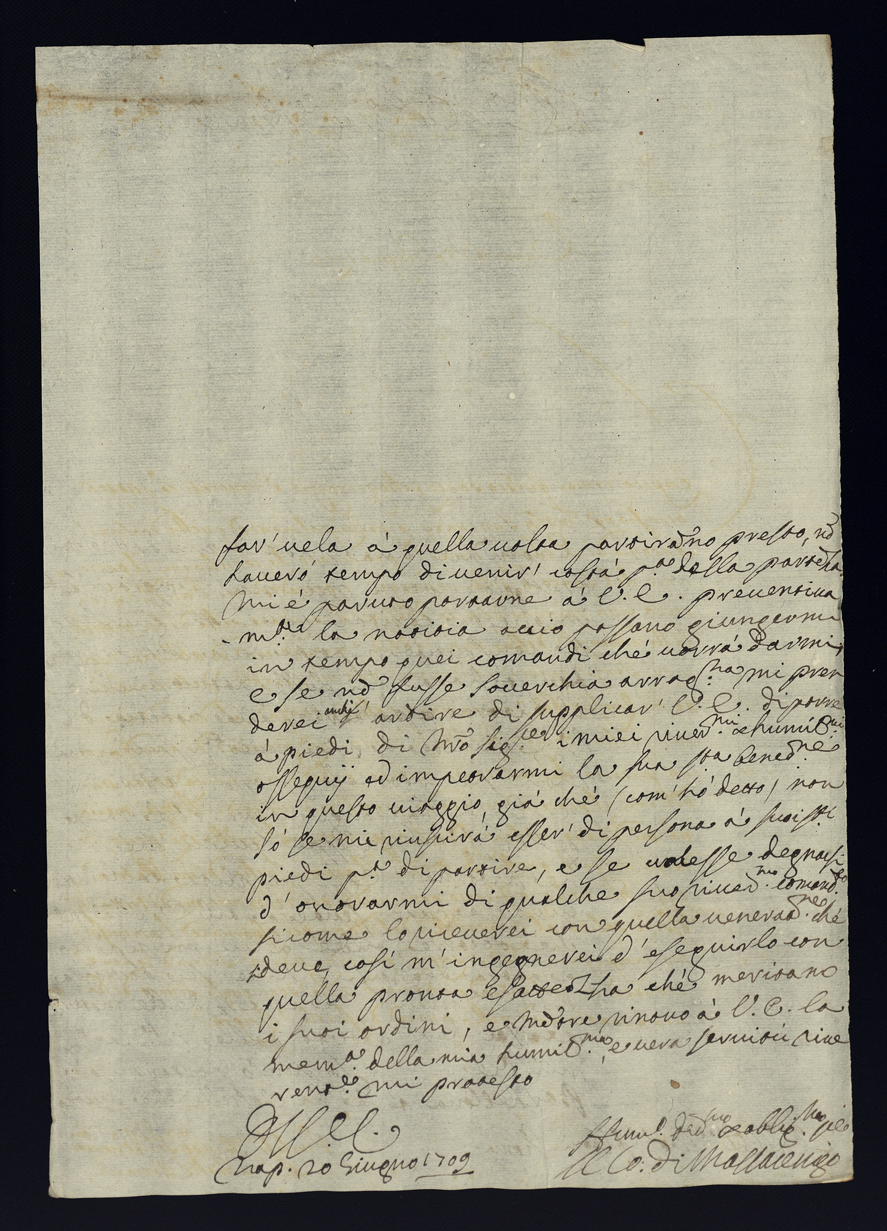 far' vela à quella volta partirãno presto, nõ
haverò tempo di venir' costà p.a della partẽza
mi è paruto portarne à V. E. preventiva
m.te la notitia acciò possano giungermi
in tempo quei comandi che vorrà darmi,
e se nõ fusse soverchia arrog.za mi pren
derei anche ardire di supplicar' V. E. di porre
à piedi di Nr̃o Sig.re i miei river.mi et humil.mi
ossequij ed impetrarmi la sua sta bened.ne
in questo viaggio, già che (com' hò detto) non
sò se mi riuscirà esser' di persona à suoi ss.i
piedi p.a di partire, e se volesse degnarsi
d' onorarmi di qualche suo river.mo comand.to
sicome lo riceverei con quella venerat.ne che
devo, così m' ingegnerei d' eseguirlo con
quella pronta esattezza che meritano
i suoi ordini, e mẽtre rinovo à V. E. la
mem.a della mia humil.ma e vera servitù rive
rent.e mi protesto
D. V. E.
Nap. 20 Giugno 1709
Hum.o dev.mo et oblig.mo
Il Co. di